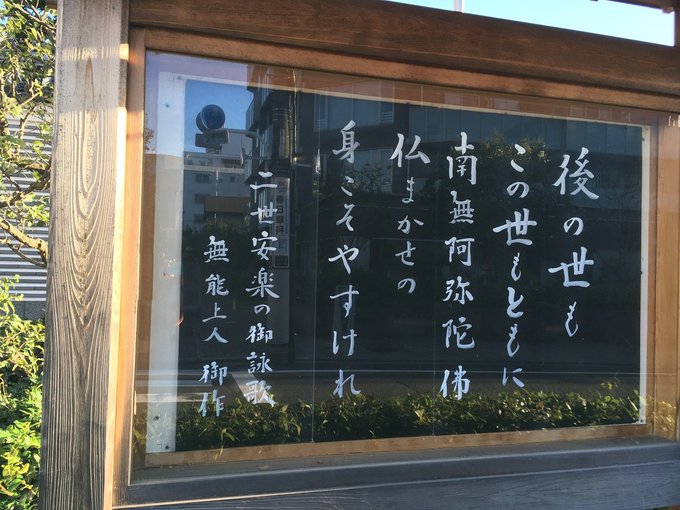 後の世も
この世もともに
南無阿弥陀佛
仏まかせの
身こそやすけれ
二世安楽の御詠歌
無能上人 御作